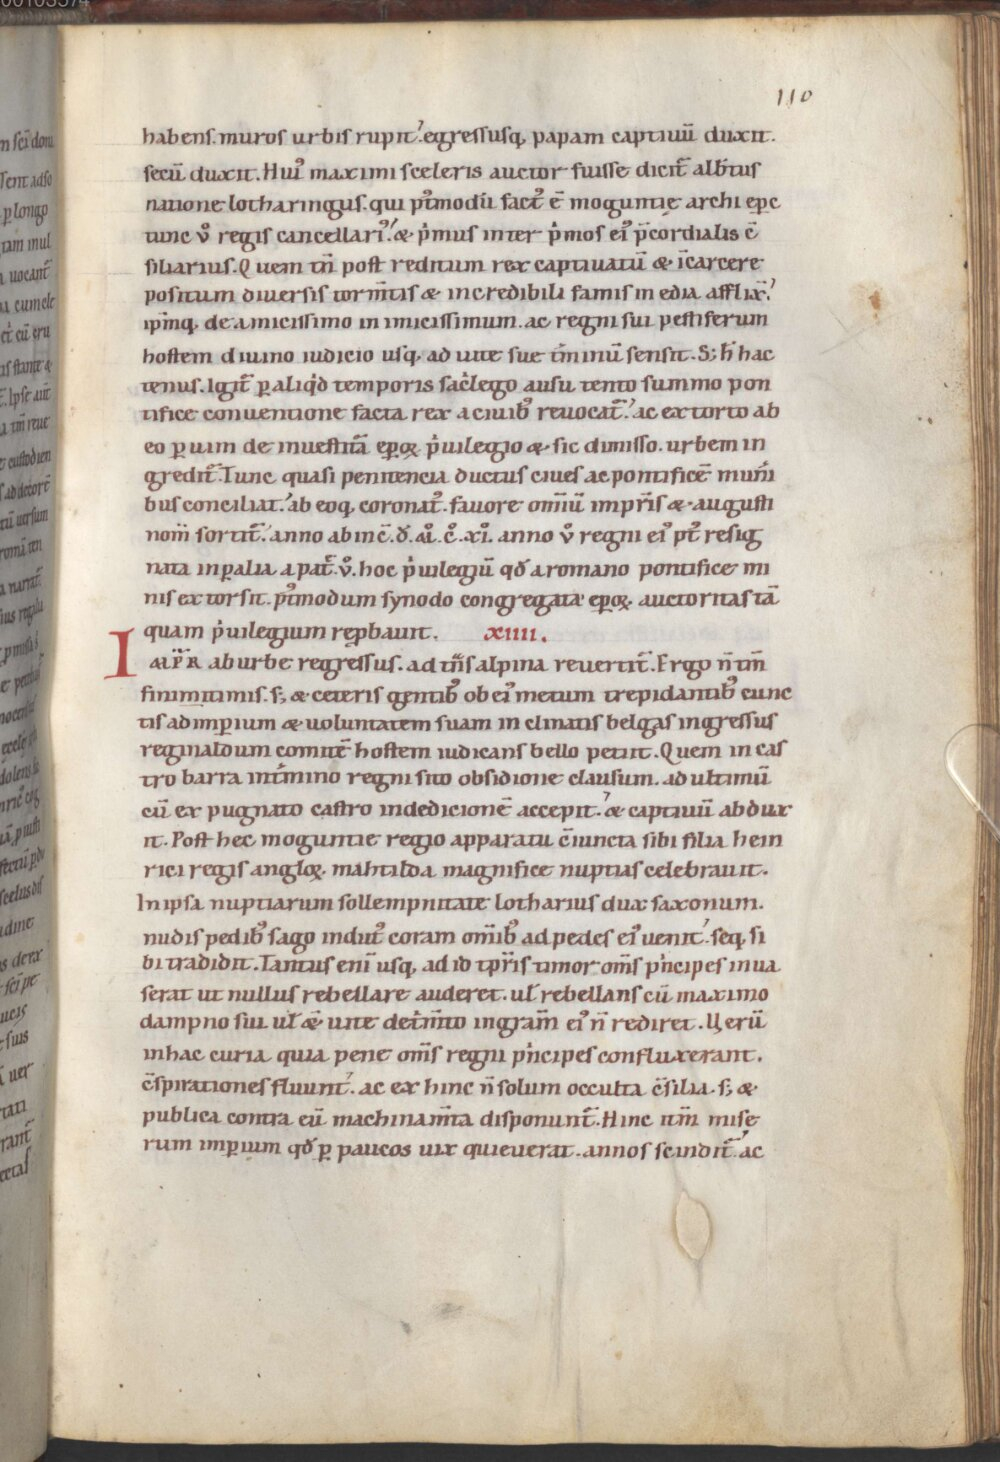 110
habens. muros urbis rupit. egressusq; papam captiuū duxit.
secū duxit. Hui᷒ maximi sceleris auctor fuisse dicit᷑ alb̄tus
natione lotharingus. qui p᷒tmodū fact᷒ ē moguntie archi ep̄c
tunc v̊ regis cancellari᷒. & p̍mus inter p̍mos ei᷒ p̄cordialis c̄
siliarius. Quem tn̄ post reditum rex captiuatū & īcarcere
positum diuersis torm̄tis & incredibili famis inedia afflix̄.
ip̄mq; de amicissimo inimicissimum. ac regni sui pestiferum
hostem diuino iudicio usq; ad uite sue t̄minū sensit. S; h̄ hac
tenus. Igit᷑ ꝑ aliq̍d temporis sac̍lego ausu tento summo pon
tifice conuentione facta rex a ciuib᷒ reuocat᷑. ac extorto ab
eo ꝑ uim de inuestit̄a ep̄oꝝ p̍uilegio & sic dimisso. urbem in
gredit᷑. Tunc quasi penitencia ductus ciues ac pontificē mun̄i
bus conciliat. ab eoq; coronat᷑. fauore om̄iū imp̄ris & augusti
nom̄ sortit᷑. anno ab inc̄. ꝺ. ai. c̊. xi. anno v̊ regni ei᷒ p᷒t resig
nata inꝑalia a pat̄. v̊. hoc p̍uilegiū qđ a romano pontifice mi
nis extorsit. p᷒tmodum synodo congregata ep̄oꝝ auctoritas tā
quam p̍uilegium rep̱bauit. XIIII.
Imp̄r ab urbe regressus. ad tn̄salpina reuertit᷑. Ergo n̄ tm̄
finimitimis. s; & ceteris gentib᷒ ob ei᷒ metum trepidantib᷒ cunc
tis ad imꝑium & uoluntatem suam inclinatis belgas ingressus
reginaldum comitē hostem iudicans bello petiit. Quem in cas
tro barra int̄mino regni sito obsidione clausum. ad ultimū
cū expugnato castro indedicionē accepit. & captiuū abdux
it. Post hec moguntie regio apparatu c̄iuncta sibi filia hein
rici regis angloꝝ. mahtilda magnifice nuptias celebrauit.
In ipsa nuptiarum sollempnitate lotharius dux saxonum.
nudis pedib᷒ sago indut᷒ coram om̄ib᷒ ad pedes ei᷒ uenit. seq; si
bi tradidit. Tantus eni᷒ usq; ad id tp̄ris timor om̄s p̍ncipes inua
serat ut nullus rebellare auderet. uł rebellans cū maximo
dampno sui uł & uite det̍m̄to in gram̄ ei᷒ n̄ rediret. Uerū
in hac curia quia pene om̄s regni p̍ncipes confluxerant.
c̄spirationes fluunt. ac ex hinc n̄ solum occulta c̄silia. s; &
publica contra eū machinam̄ta disponunt᷑. Hinc itm̄ mise
rum imꝑium qđ ꝑ paucos uix quieuerat. annos scindit᷑. ac